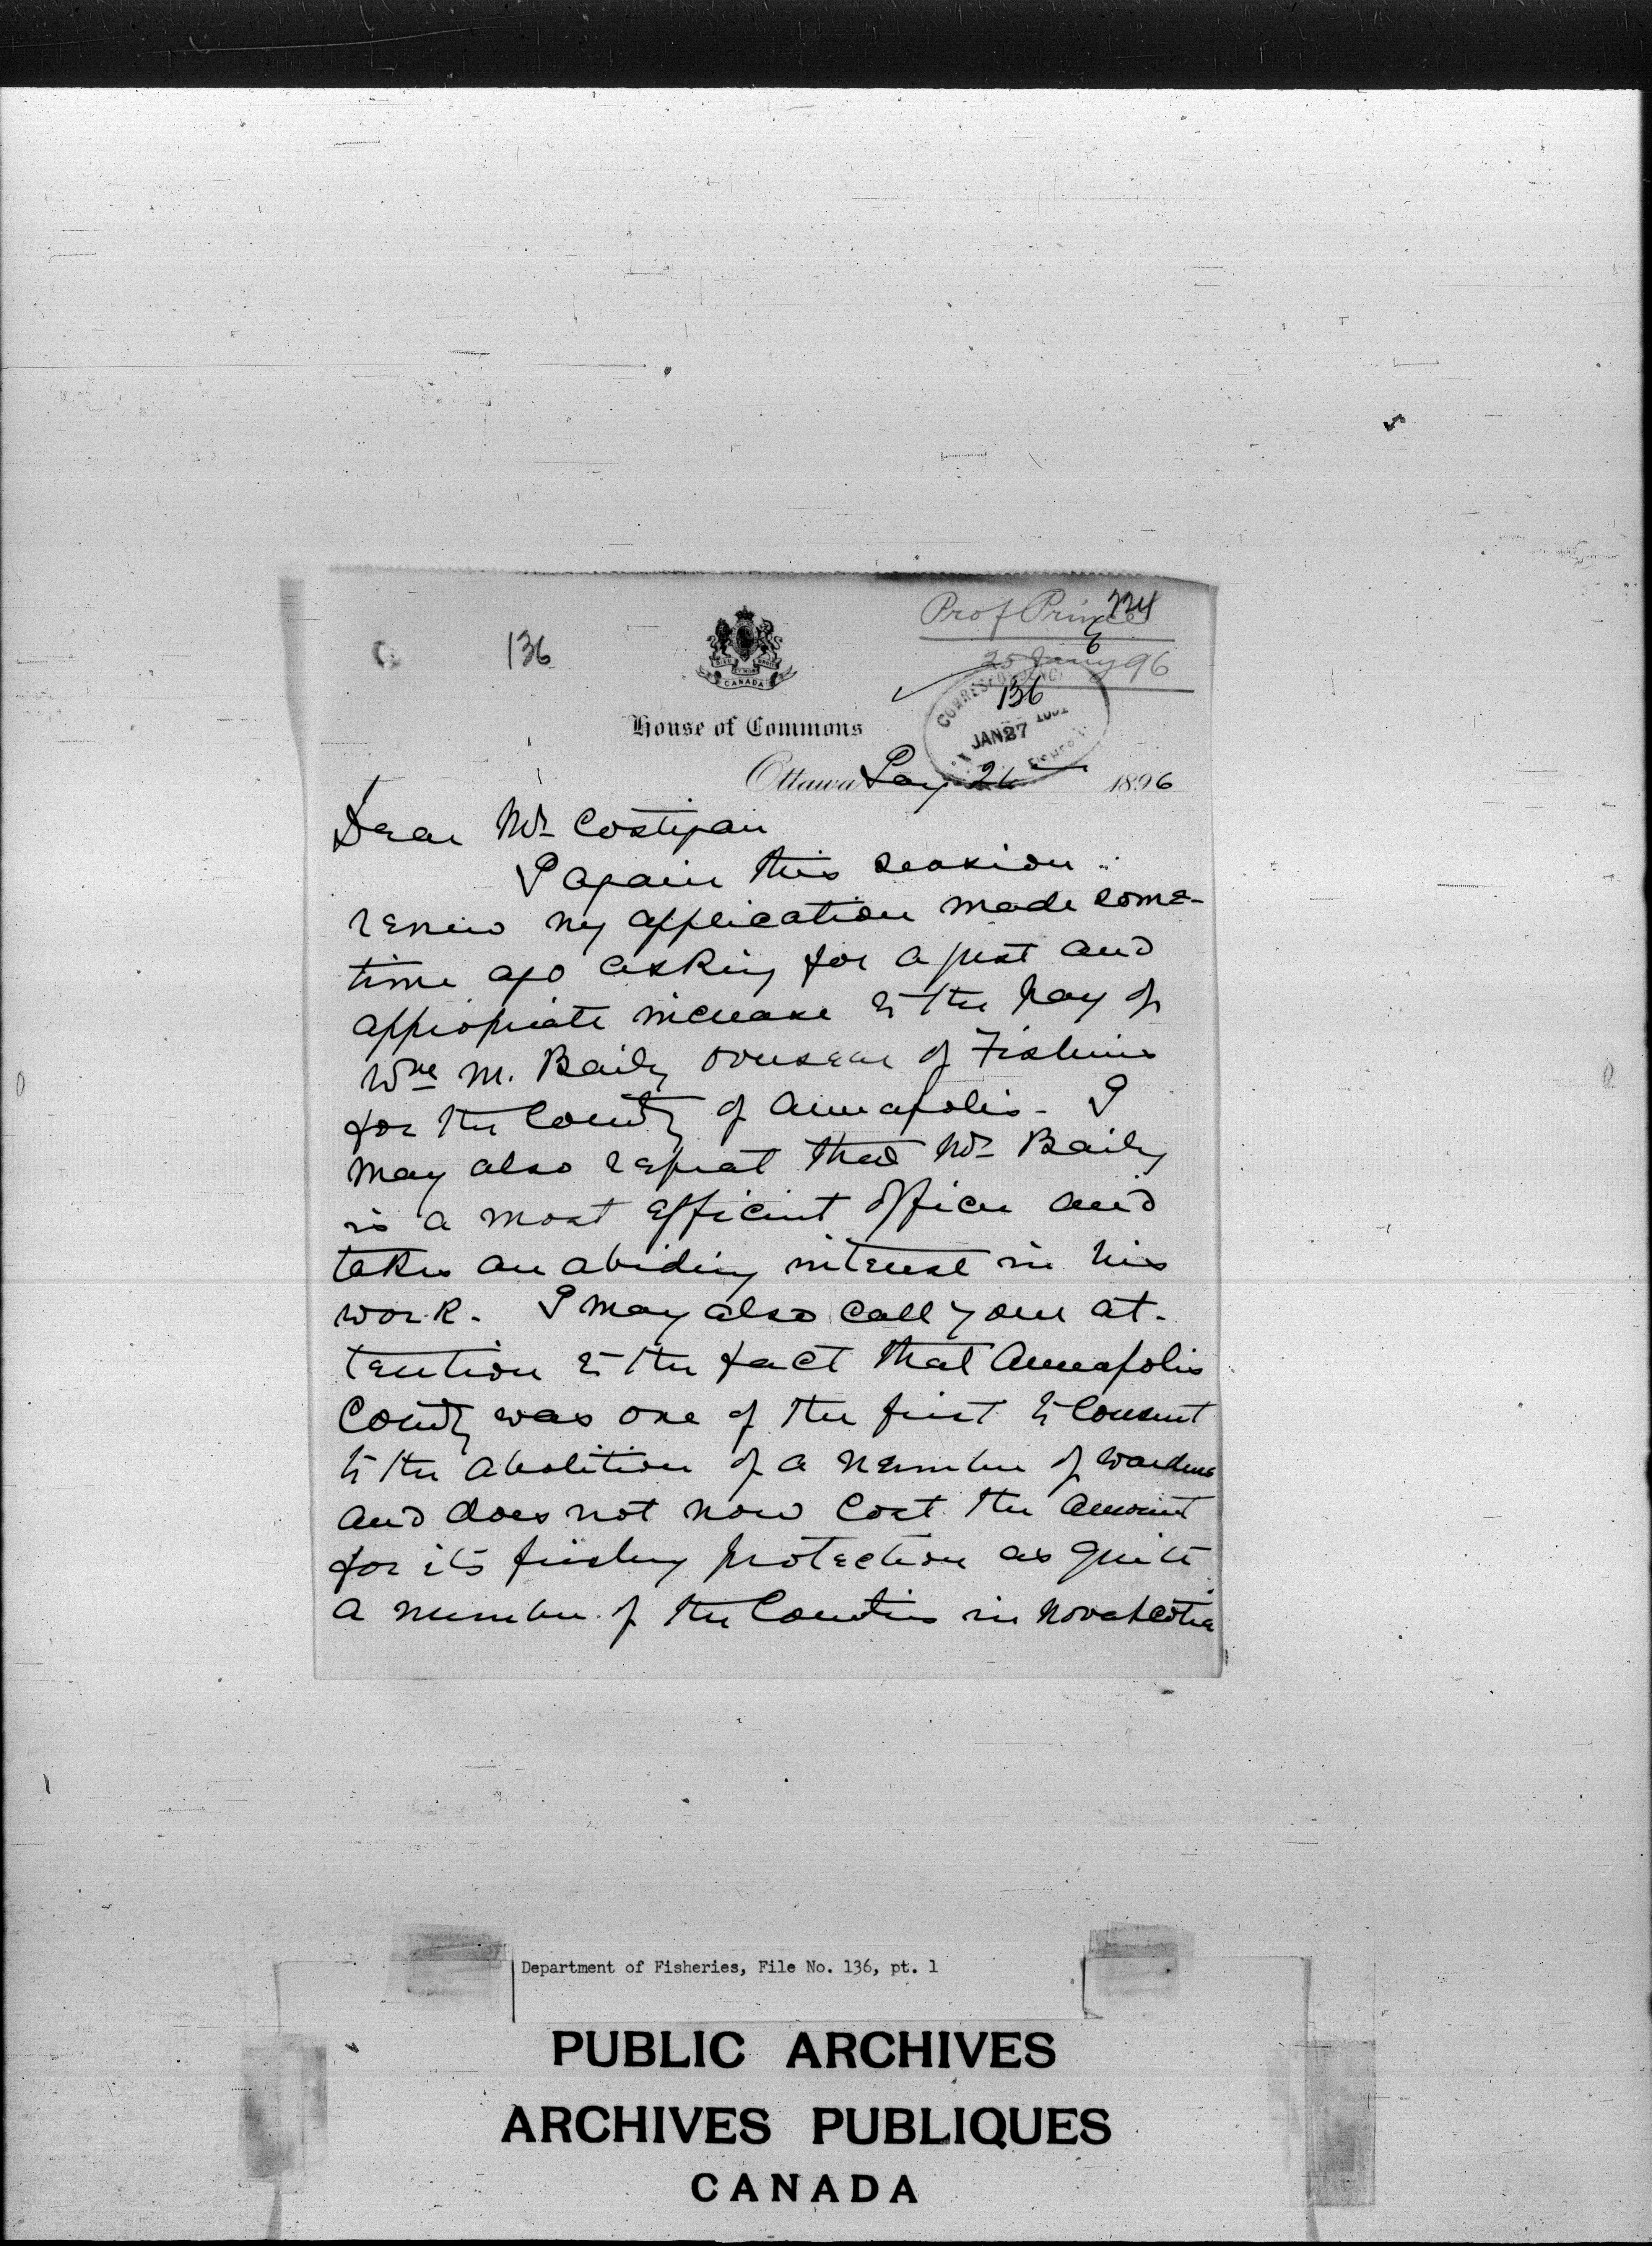 Prof Prince
136
25 Jany 96
CANADA
CORRESPONDENCE
136
JAN 27
House of Commons
Ottawa Jany 24 1896
Dear Mr Costigan
I again this session
renew my application made some-
time ago asking for a just and
appropriate increase to the pay of
Wm M. Baily overseer of Fisheries
for the County of Annapolis - I
may also repeat that Mr Baily
is a most efficient officer and
takes an abiding interest in his
work. I may also call your at-
tention to the fact that Annapolis
County was one of the first to consent
to the abolition of a number of wardens
and does not now cost the amount
for its fishery protection as quite
a number of the Counties in Nova Scotia
Department of Fisheries, File No. 136, pt. 1
PUBLIC ARCHIVES
ARCHIVES PUBLIQUES
CANADA